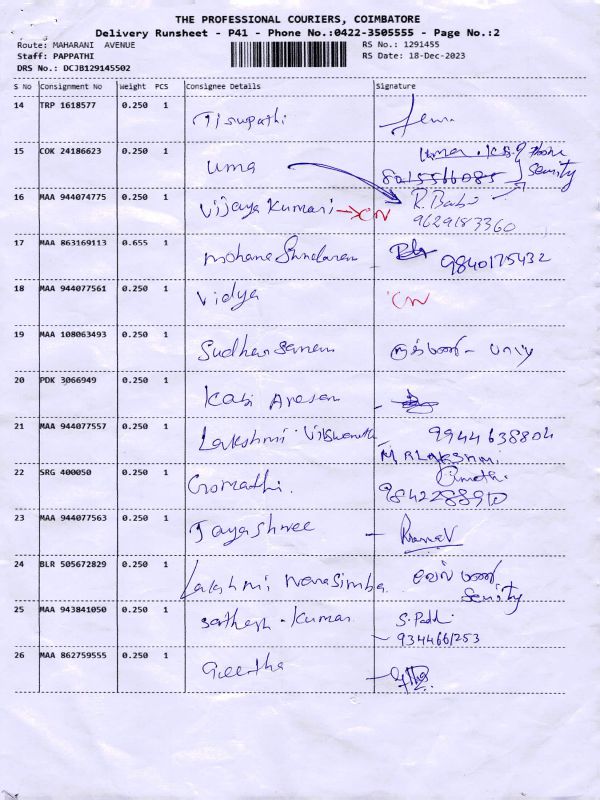 THE PROFESSIONAL COURIERS, COIMBATORE
Delivery Runsheet - P41 - Phone No.:0422-3505555 - Page No.:2
Route: MAHARANI AVENUE RS No.: 1291455
Staff: PAPPATHI RS Date: 18-Dec-2023
DRS No.: DCJB129145502
S No Consignment No Weight PCS Consignee Details Signature
14 TRP 1618577 0.250 1 Tirupathi
15 COK 24186623 0.250 1 Uma Uma . K.S. Phone
8015566085 Security
16 MAA 944074775 0.250 1 Vijaya Kumari CN R. Babu
9629183360
17 MAA 863169113 0.655 1 9840175432
18 MAA 944077561 0.250 1 Vidya CN
19 MAA 108063493 0.250 1
20 PDK 3066949 0.250 1 Kabi Arasan
21 MAA 944077557 0.250 1 Lakshmi 9944638804
MALAKSHMI
22 SRG 400050 0.250 1 Gomathi.
9842288910
23 MAA 944077563 0.250 1 Jayashree
24 BLR 505672829 0.250 1 Lakshmi Narasimha
25 MAA 943841050 0.250 1 Sathesh . Kumar S. Paddi
9344661253
26 MAA 862759555 0.250 1 Geetha